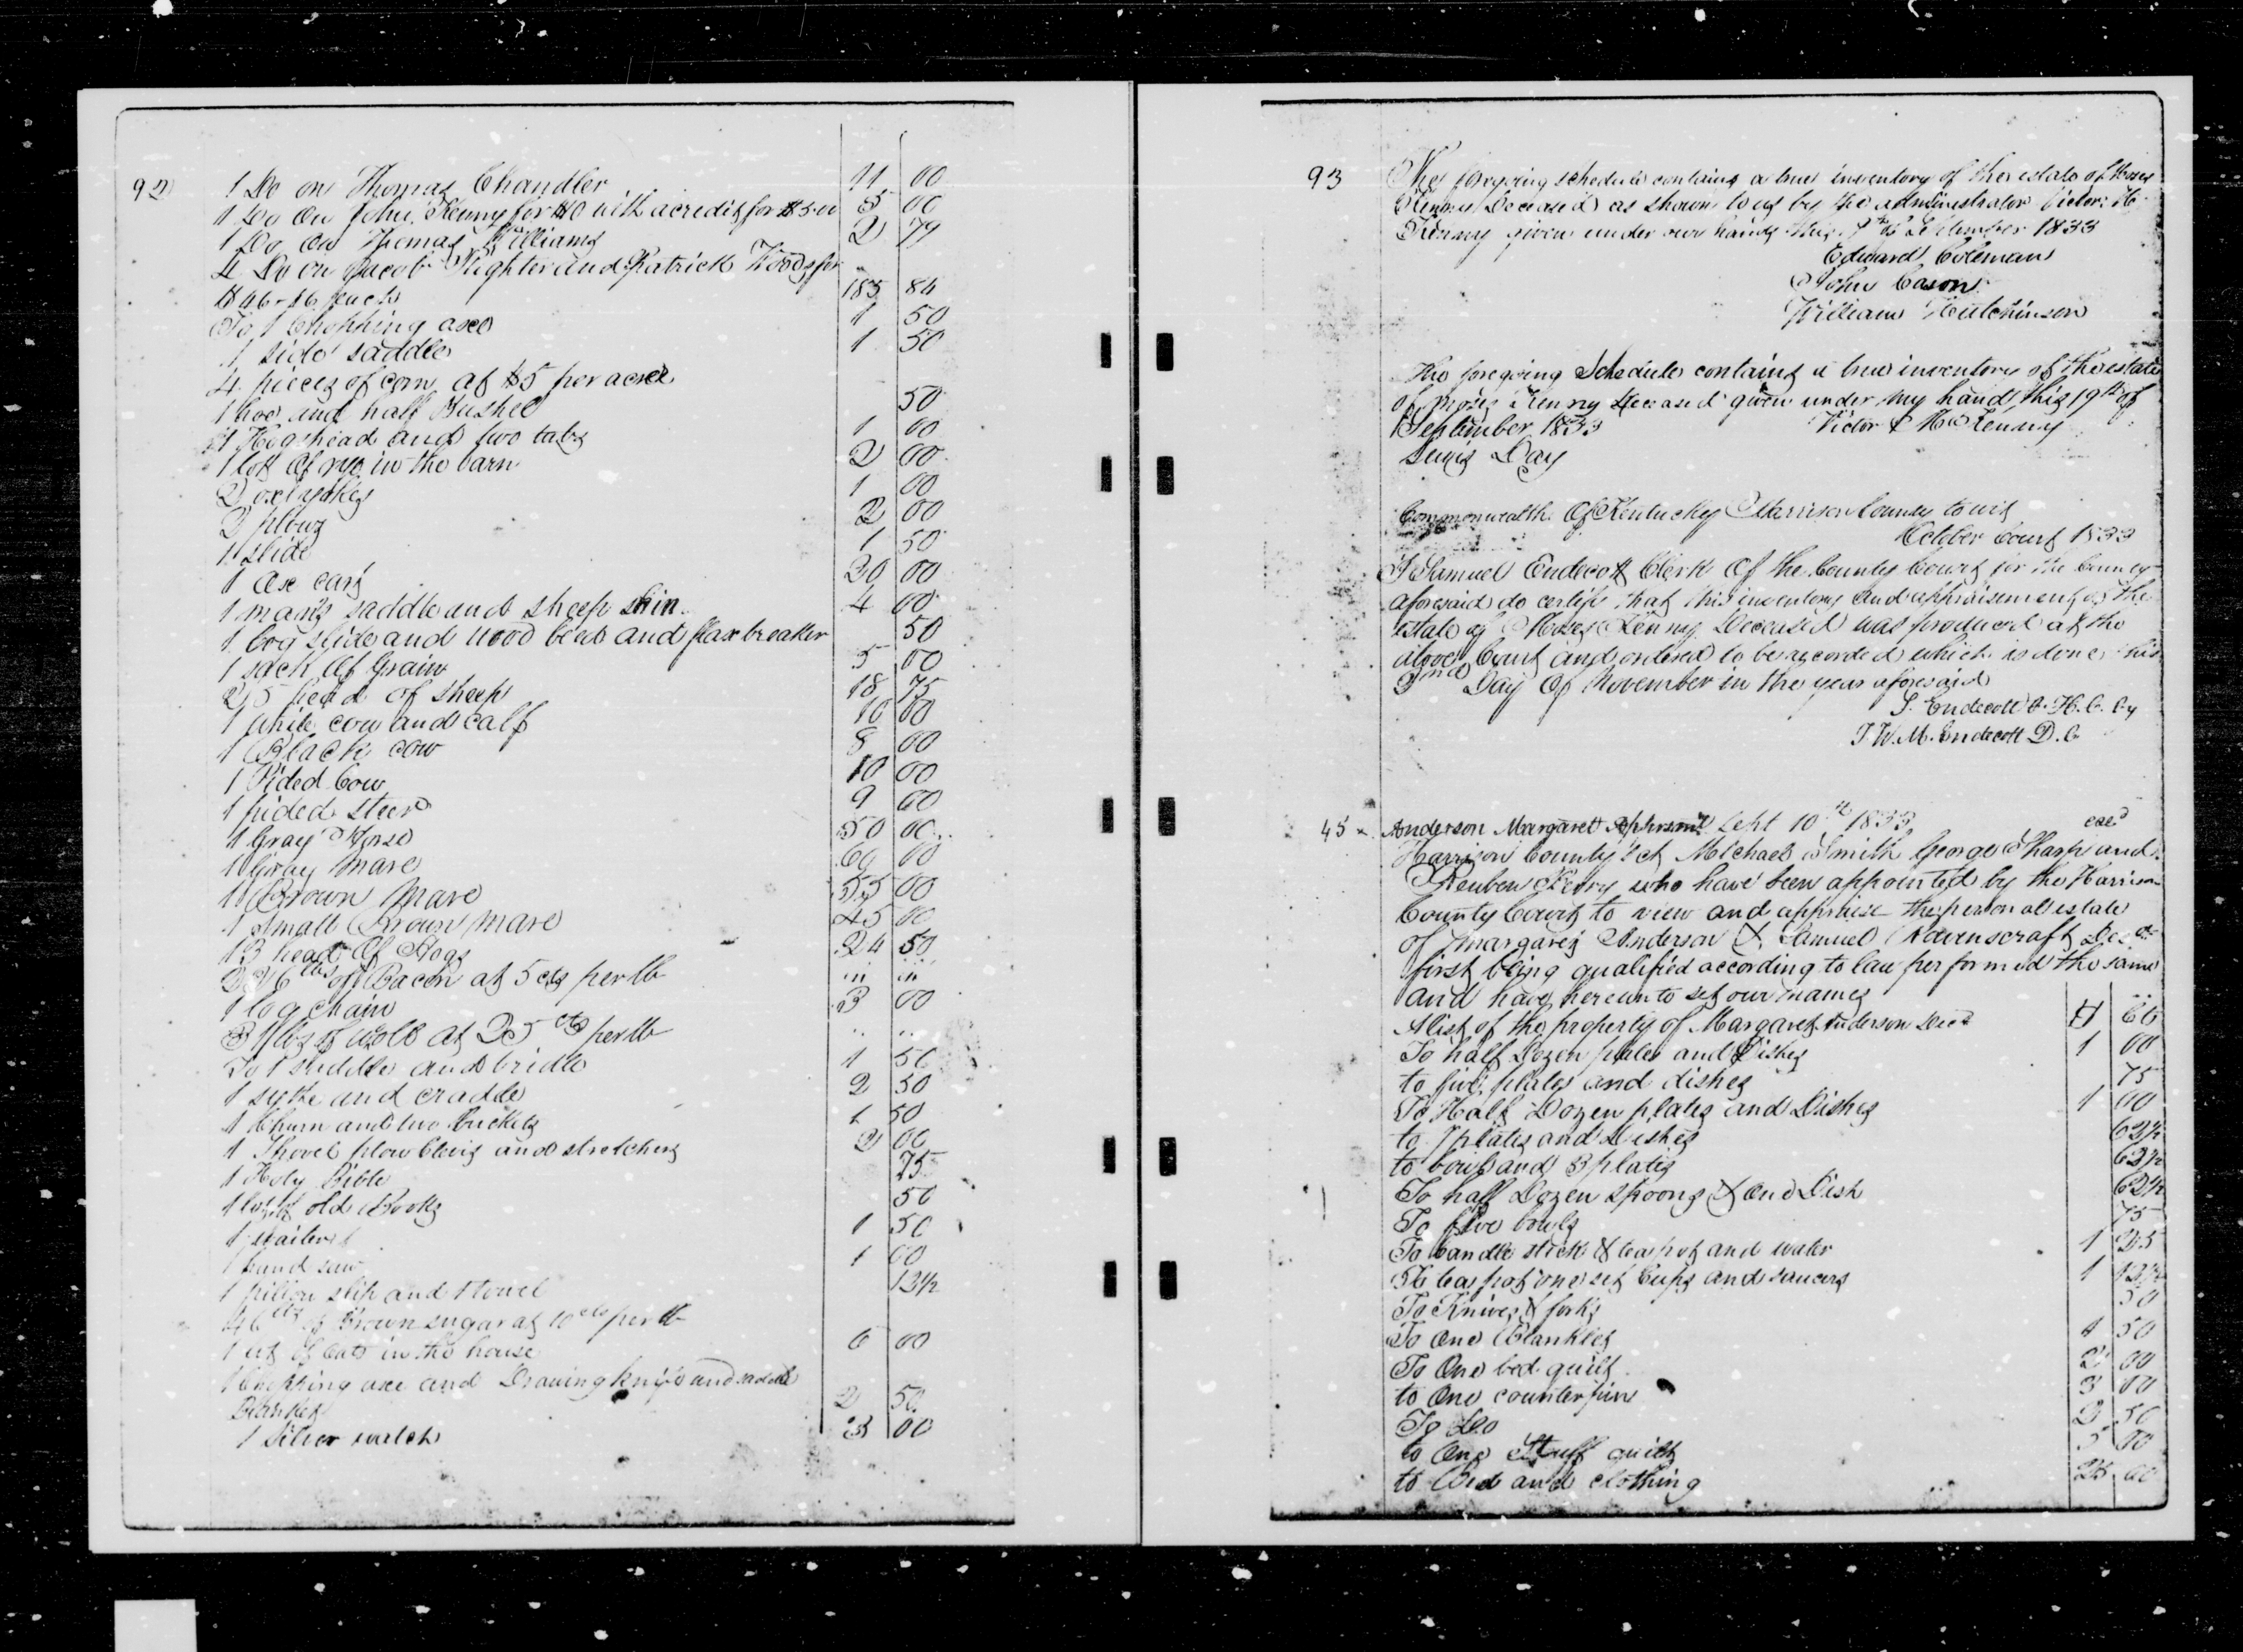 92
1 Do on Thomas Chandler 11 00
1 Do on John Kenny for $10 with a credit for $5.00 5 00
1 Do on Thomas Williams 2 79
4 Do on Jacob Slighter and Patrick Woods for
$46-46 each 185 84
To 1 Chopping axe 1 50
1 side saddle 1 50
4 pieces of corn at $5 per acre
1 hoe and half Bushel 50
1 Hogshead and two tubs 1 00
1 lot of rye in the barn 2 00
2 oxe yokes 1 00
2 plows 2 00
1 slide 1 50
1 Oxe cart 20 00
1 man's saddle and sheep skin 4 00
1 log slide and wood bed and flax breaker 50
1 sack of Grain 5 00
25 head of sheep 18 75
1 white cow and calf 10 00
1 Black cow 8 00
1 Pided Cow 10 00
1 pided steer 9 00
1 Gray Horse 50 00
1 Gray Mare 60 00
1 Brown Mare 55 00
1 Small Brown Mare 45 00
13 head of Hogs 24 50
lbs of Bacon at 5 cts per lb
1 log chain 3 00
31 lbs of wool at 25 cts per lb
To 1 saddle and bridle 1 50
1 sythe and cradle 2 50
1 Churn and two buckets 1 50
1 Shovel plow clevis and stretchers 2 00
1 Holy Bible 75
1 lot of old Books 50
1 waiter 1 50
1 hand saw 1 00
1 pillion slip and towel 12½
46 lbs of Brown sugar at 10 cts per lb
1 lot of oats in the house 6 00
1 Chopping axe and Drawing knife and saddle
Blanket 2 50
1 Silver watch 3 00
93
The foregoing schedule contains a true inventory of the estate of Moses
Kenny Deceased as shown to us by the administrator Victor H.
Kenny given under our hands this of September 1833
Edward Coleman
John Cason
William Hutchinson
The foregoing Schedule contains a true inventory of the estate
of Moses Kenny deceased given under my hand this 19th of
September 1833 Victor H Kenny
Lewis Day
Commonwealth Of Kentucky Harrison County to wit
October Court 1833
I Samuel Endecott Clerk Of the County Court for the County
aforesaid do certify that this inventory and appraisement of the
estate of Moses Kenny Deceased was produced at the
above Court and ordered to be recorded which is done this
Day Of November in the year aforesaid
S. Endecott C. H. C. By
J. W. M. Endecott D. C.
45 Anderson Margaret Sept 10th 1833
Harrison County Sct Michael Smith George Sharp and
Reuben Kerry who have been appointed by the Harrison
County Court to view and appraise the personal estate
of Margaret Anderson & Samuel Ravenscraft Dec
first being qualified according to law performed the same
and have hereunto set our names
A list of the property of Margaret Anderson Decd
To half Dozen plates and Dishes 1 00
to five plates and dishes 75
To Half Dozen plates and Dishes 1 00
to 7 plates and Dishes 62½
to bowls and 3 plates 62½
To half Dozen spoons & one Dish 62½
To five bowls 75
To Candle stick & teapot and water 1 25
To tea pot one set Cups and saucers 1 12½
To Knives & forks 50
To One Blanket 1 50
To One bed quilt 2 00
to One counterpin 3 00
To Do 2 50
to One Stuff quilt 5 00
to Bed and clothing 25 00